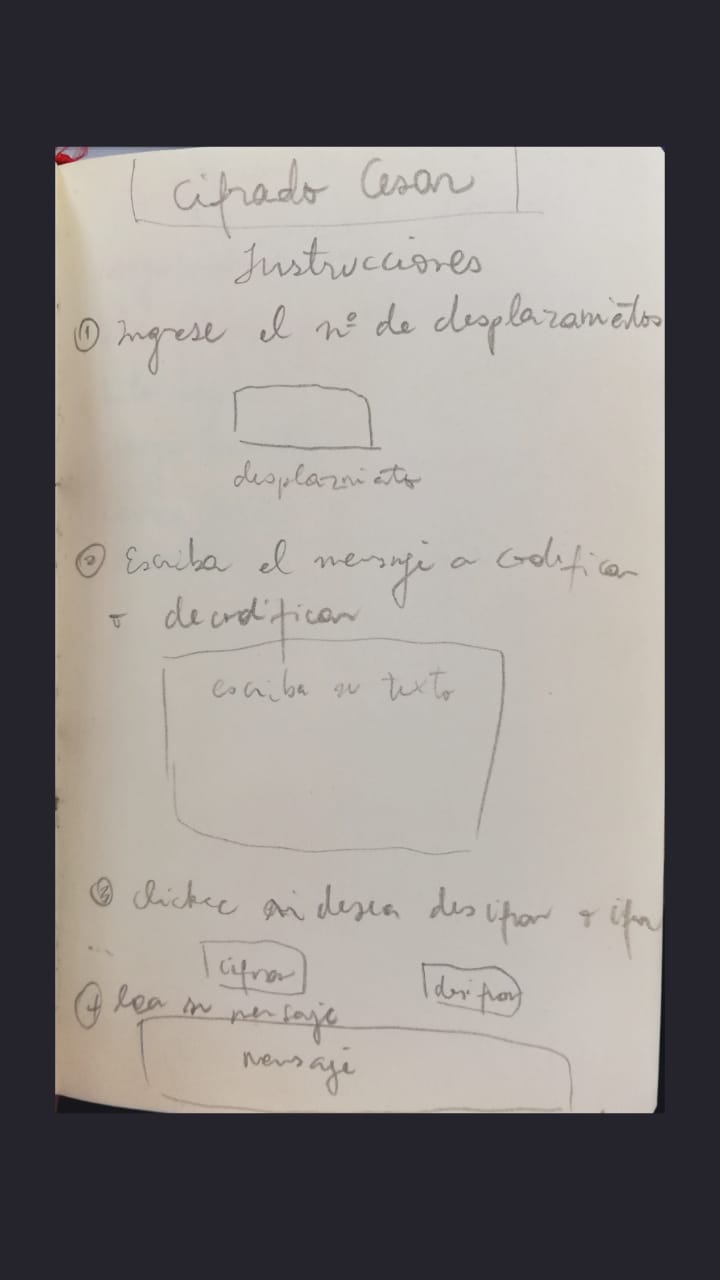 Cifrado Cesar
Instrucciones
① Ingrese el nº de desplazamientos
desplazmiato
② Escriba el mensaje a codificar
o decodificar
escriba su texto
③ Clickee si desea desifrar o ifra
cifrar
desifrar
④ lea su mensaje
mensaje